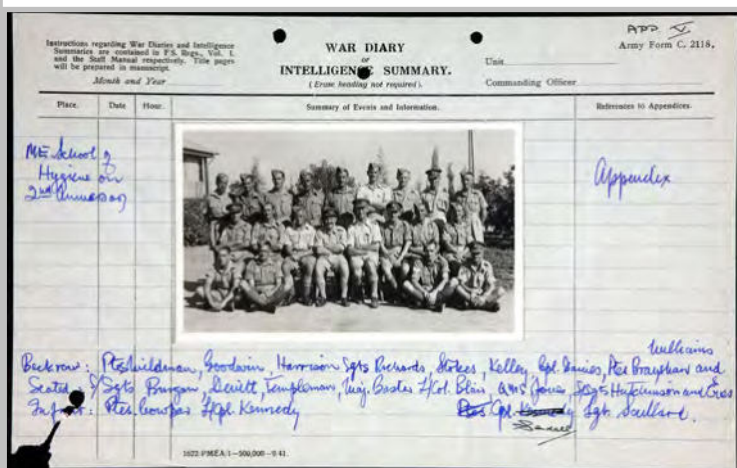 APP. V
Army Form C. 2118.
Instructions regarding War Diaries and Intelligence
Summaries are contained in F.S. Regs., Vol. I.
and the Staff Manual respectively. Title pages
will be prepared in manuscript.
Month and Year
WAR DIARY
or
INTELLIGENCE SUMMARY.
(Erase heading not required).
Unit
Commanding Officer
Place. Date Hour. Summary of Events and Information. References to Appendices.
ME School of
Hygiene on
2nd
Appendix
Williams
Back row: Ptes Goodwin, Harrison Sgts Richards, Stokes, Kelley, Cpl. Pte and
Seated: S/Sgts Templeman, Maj. Lt/Col. Blair, QMS Jones, S/Sgts Hutchinson and
In front: Ptes. L/Cpl. Kennedy Cpl. Sgt.
1622/PMEA/1—500,000—9/41.